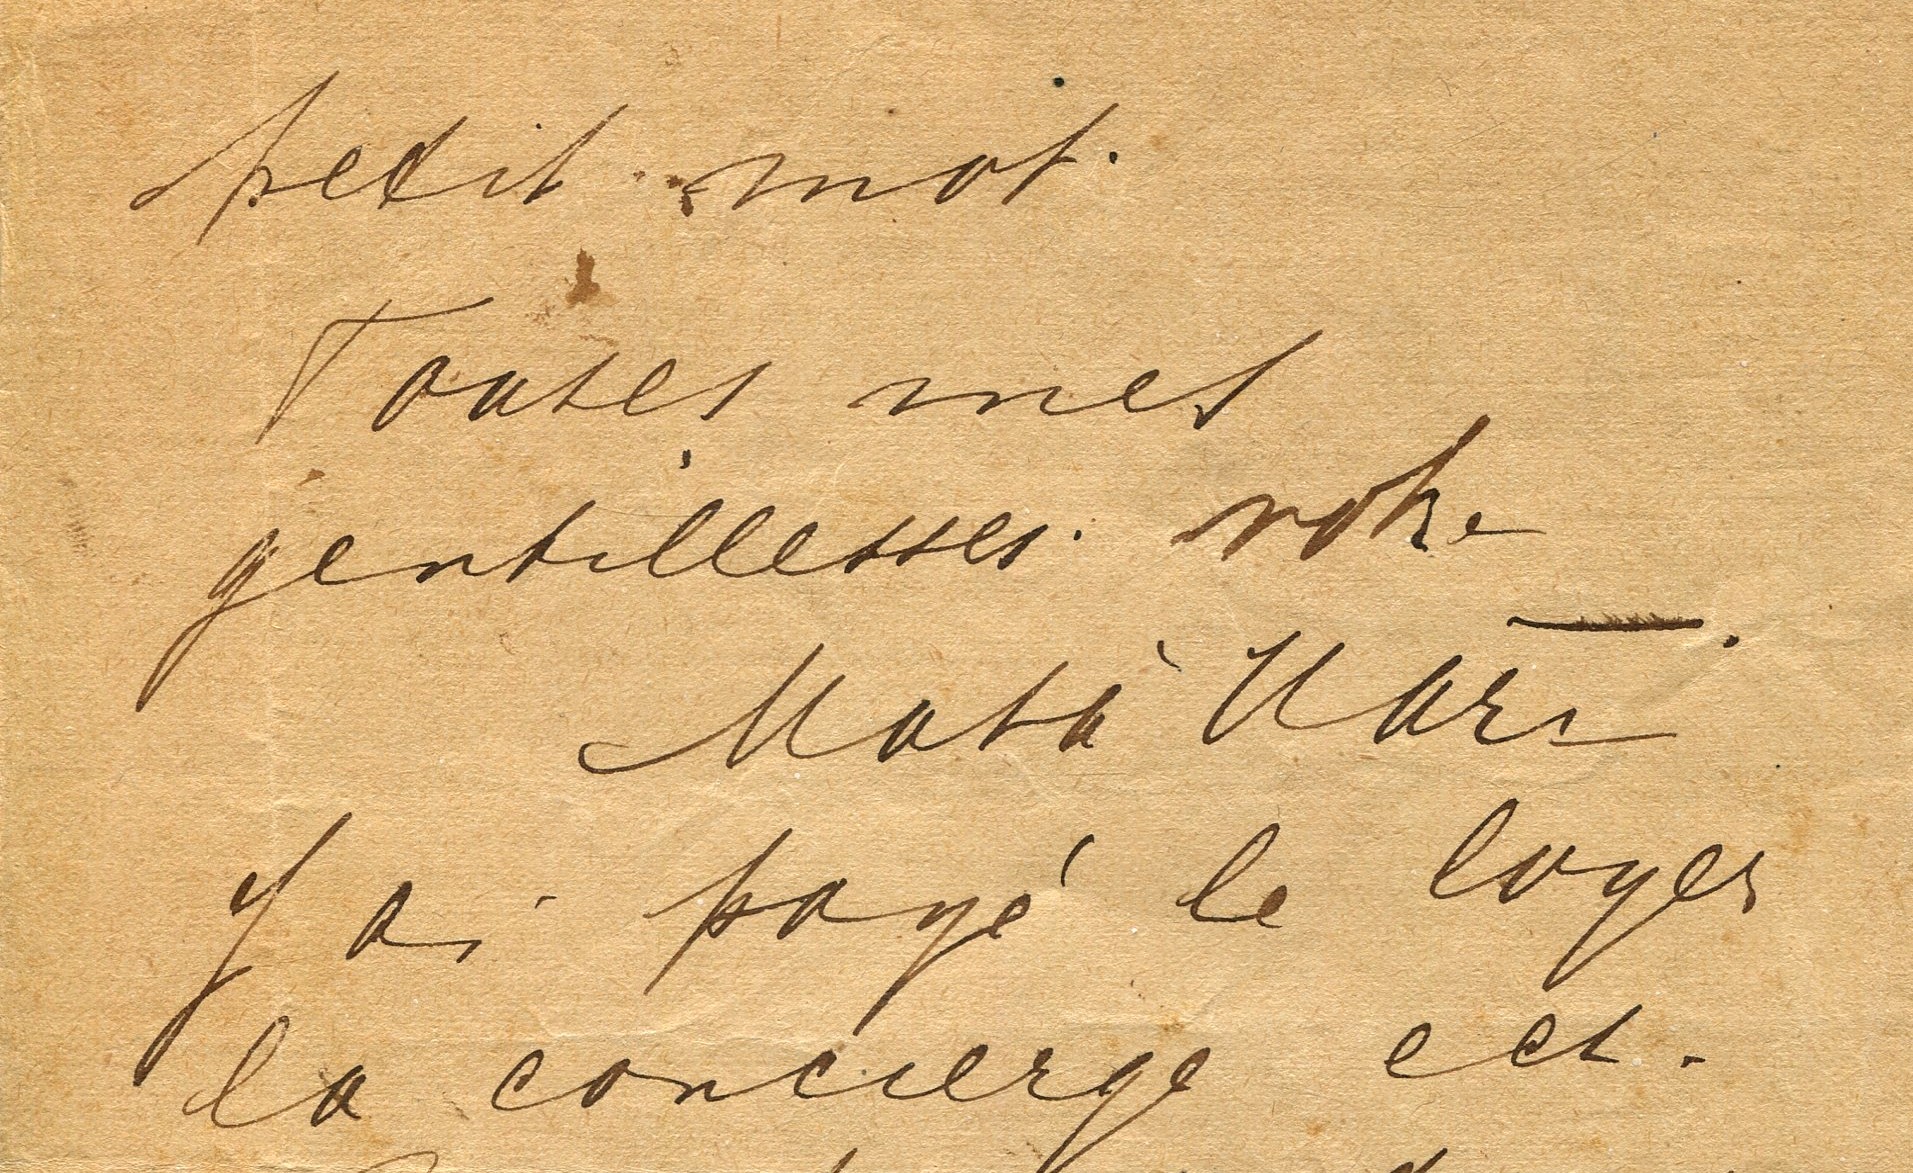 petit mot.
Toutes mes
gentillesses. votre
Mata Hari
J ai payé le loyer
la concierge ect.